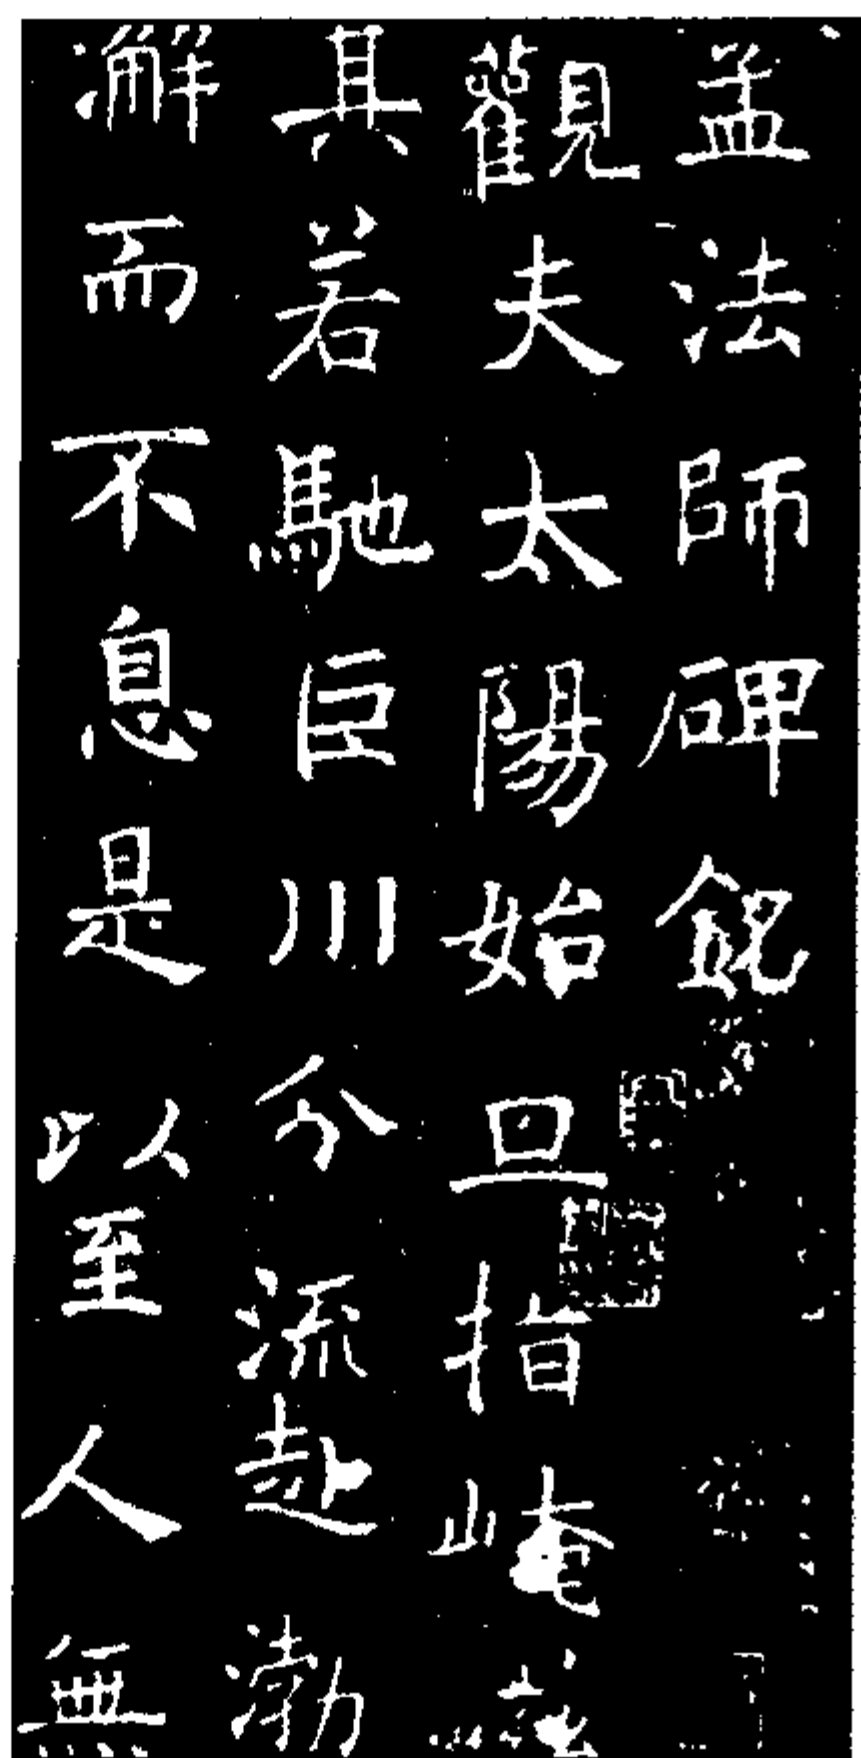 孟法師碑銘
觀夫太陽始旦指崦嵫
其若馳巨川分流赴渤
澥而不息是以至人無